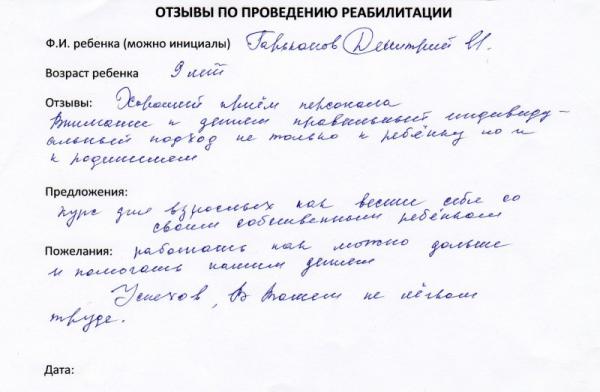 ОТЗЫВЫ ПО ПРОВЕДЕНИЮ РЕАБИЛИТАЦИИ
Ф.И. ребенка (можно инициалы) Гарьканов Дмитрий И.
Возраст ребенка 9 лет
Отзывы: Хороший приём персонала
Внимание к детям правильный индивиду-
альный подход не только к ребёнку но и
к родителям
Предложения:
курс для взрослых как вести себя со
своим собственным ребёнком
Пожелания: работать как можно дольше
и помогать нашим детям
Успехов, В Вашем не лёгком
труде.
Дата: